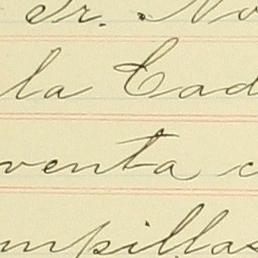 Sr. No
la Cad
venta c
mpillas